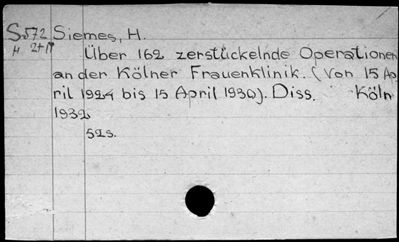 S 572 Siemes, H.
Über 162 zerstückelnde Operationen
an der Kölner Frauenklinik. (Von 15 Ap-
ril 1924 bis 15 April 1930). Diss. Köln
1932
52s.